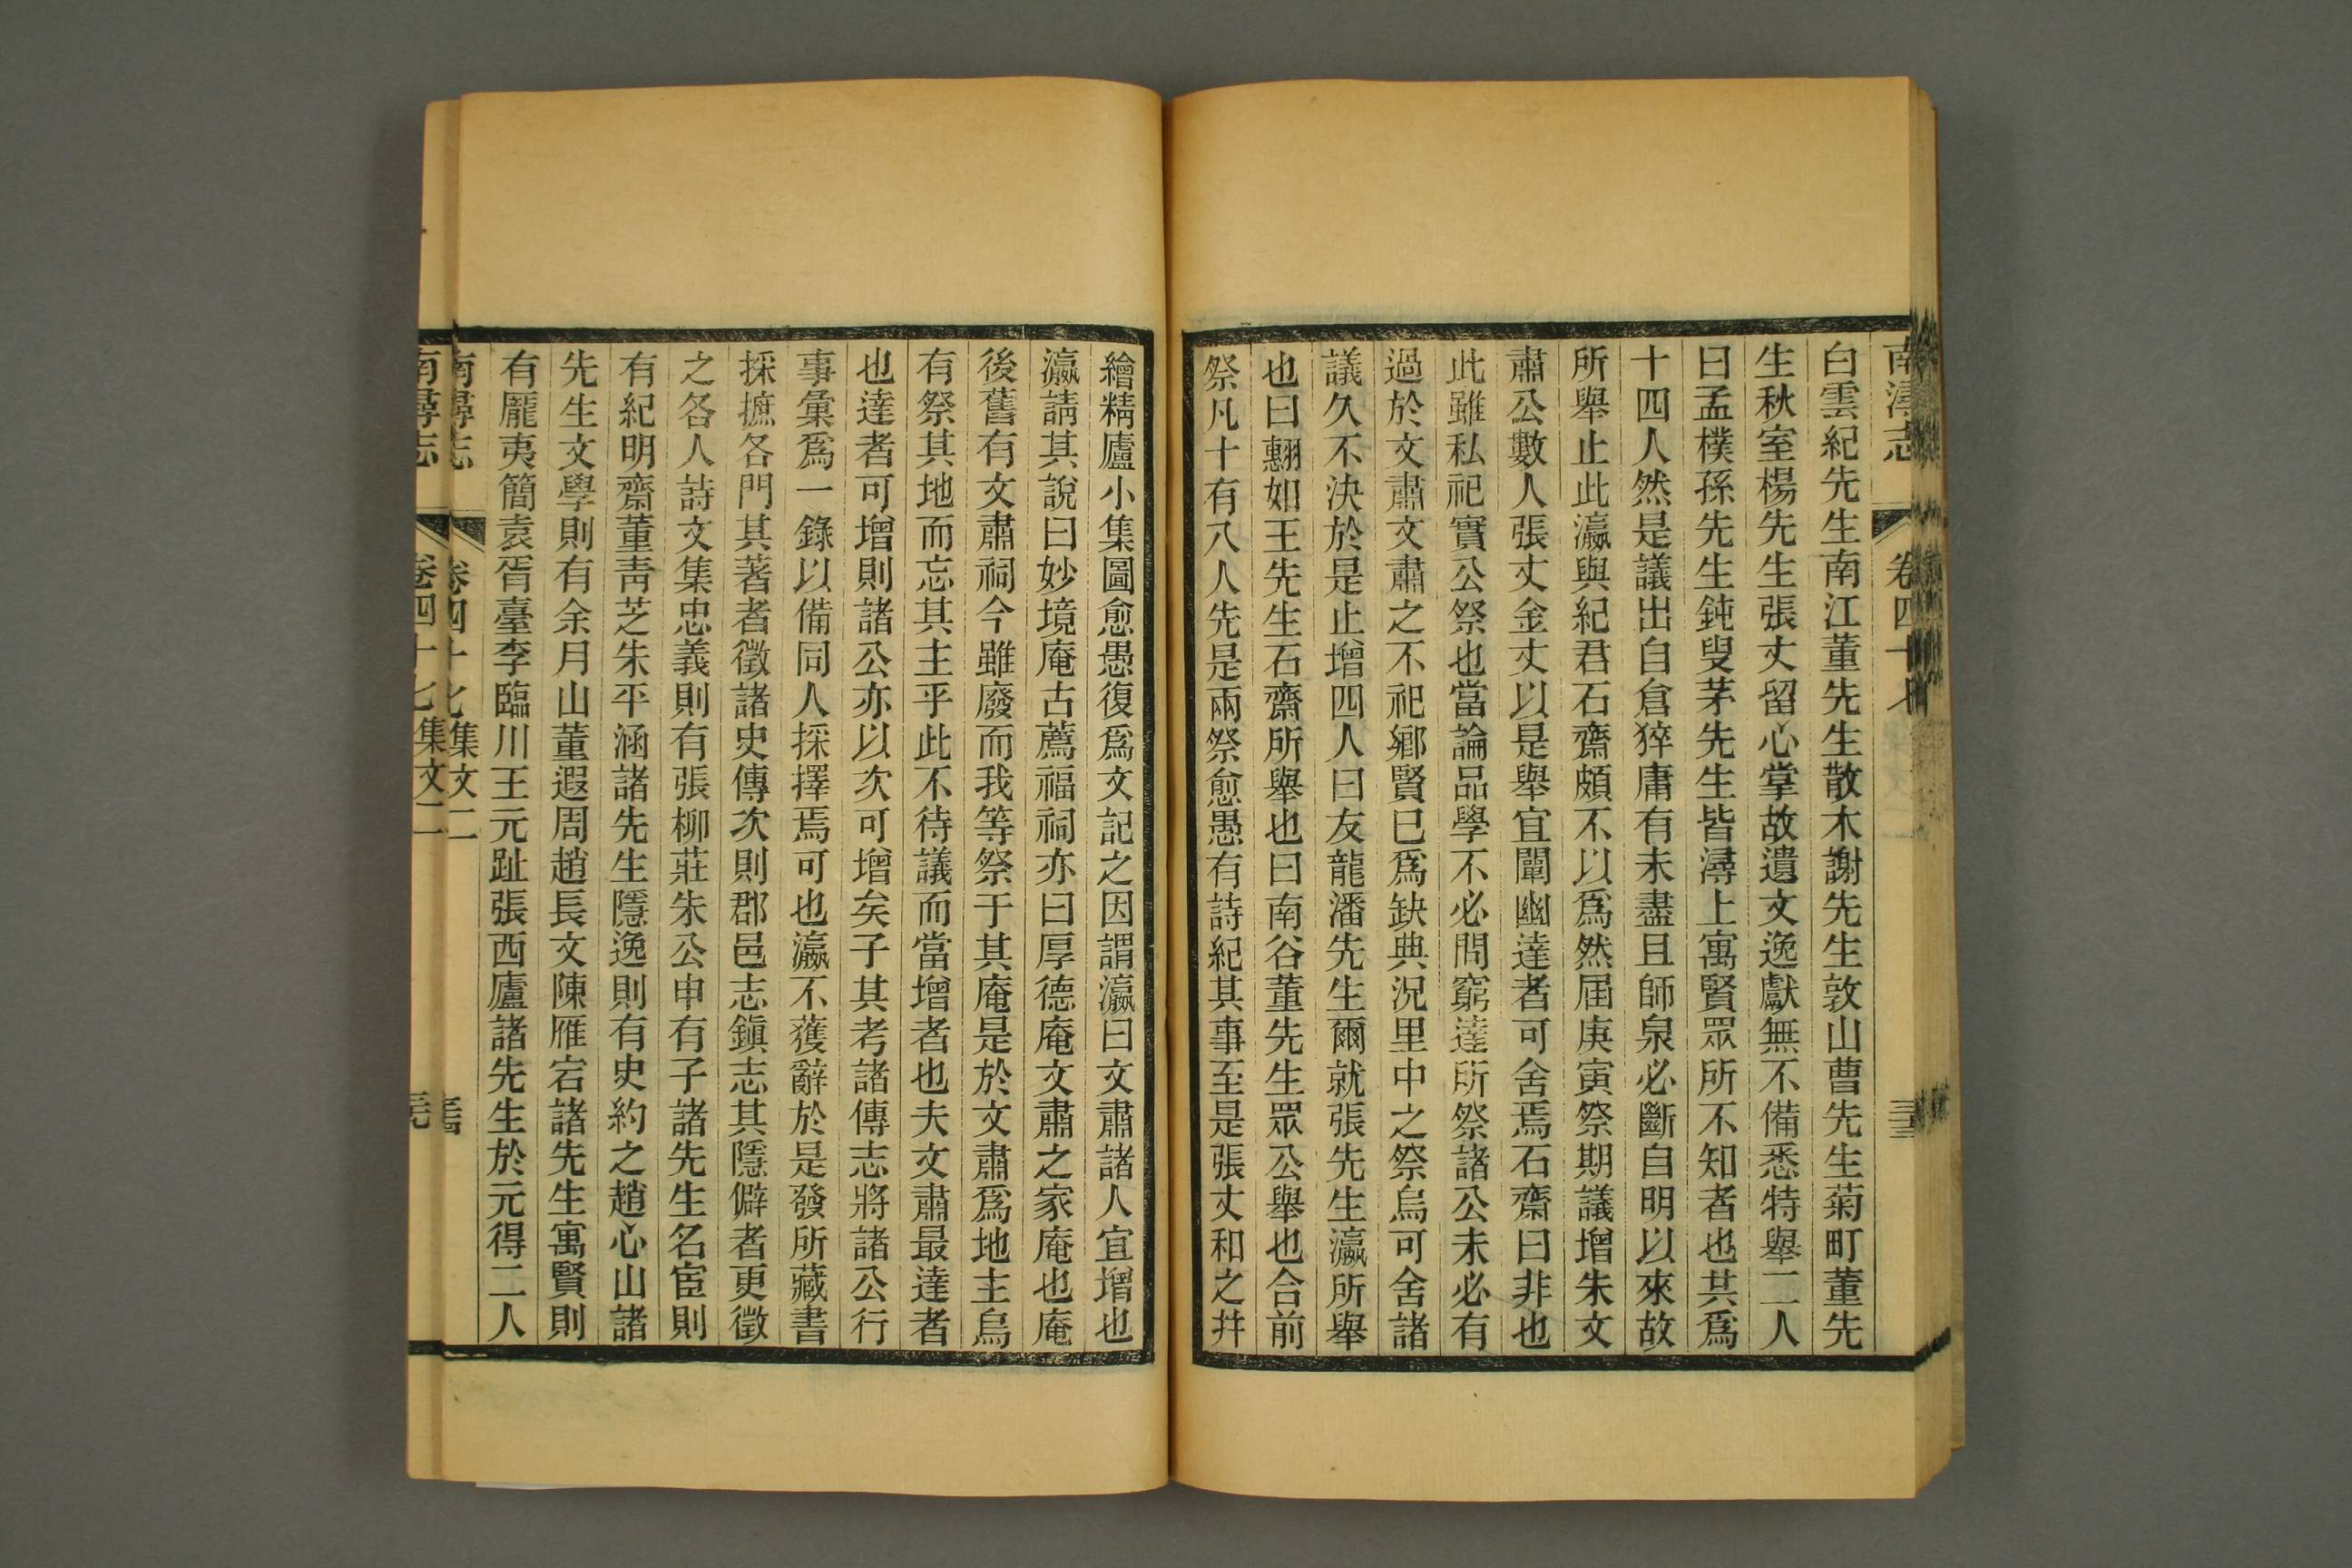 南潯志 卷四十七
白雲紀先生南江董先生散木謝先生敦山曹先生菊町董先
生秋室楊先生張丈留心掌故遺文逸獻無不備悉特舉二人
曰孟樸孫先生鈍叟茅先生皆潯上寓賢眾所不知者也其爲
十四人然是議出自倉猝庸有未盡且師泉必斷自明以來故
所舉止此瀛與紀君石齋頗不以爲然屆庚寅祭期議增朱文
肅公數人張丈金丈以是舉宜闡幽達者可舍焉石齋曰非也
此雖私祀實公祭也當論品學不必問窮達所祭諸公未必有
過於文肅文肅之不祀鄉賢已爲缺典況里中之祭烏可舍諸
議久不決於是止增四人曰友龍潘先生爾就張先生瀛所舉
也曰翽如王先生石齋所舉也曰南谷董先生眾公舉也合前
祭凡十有八人先是兩祭愈愚有詩紀其事至是張丈和之幷
繪精廬小集圖愈愚復爲文記之因謂瀛曰文肅諸人宜增也
瀛請其說曰妙境庵古薦福祠亦曰厚德庵文肅之家庵也庵
後舊有文肅祠今雖廢而我等祭于其庵是於文肅爲地主烏
有祭其地而忘其主乎此不待議而當增者也夫文肅最達者
也達者可增則諸公亦以次可增矣子其考諸傳志將諸公行
事彙爲一錄以備同人採擇焉可也瀛不獲辭於是發所藏書
採摭各門其著者徵諸史傳次則郡邑志鎭志其隱僻者更徵
之各人詩文集忠義則有張柳莊朱公申有子諸先生名宦則
有紀明齋董靑芝朱平涵諸先生隱逸則有史約之趙心山諸
先生文學則有余月山董遐周趙長文陳雁宕諸先生寓賢則
有龎夷簡袁胥臺李臨川王元趾張西廬諸先生於元得二人
南潯志 卷四十七 集文二
南潯志 卷四十七 集文二